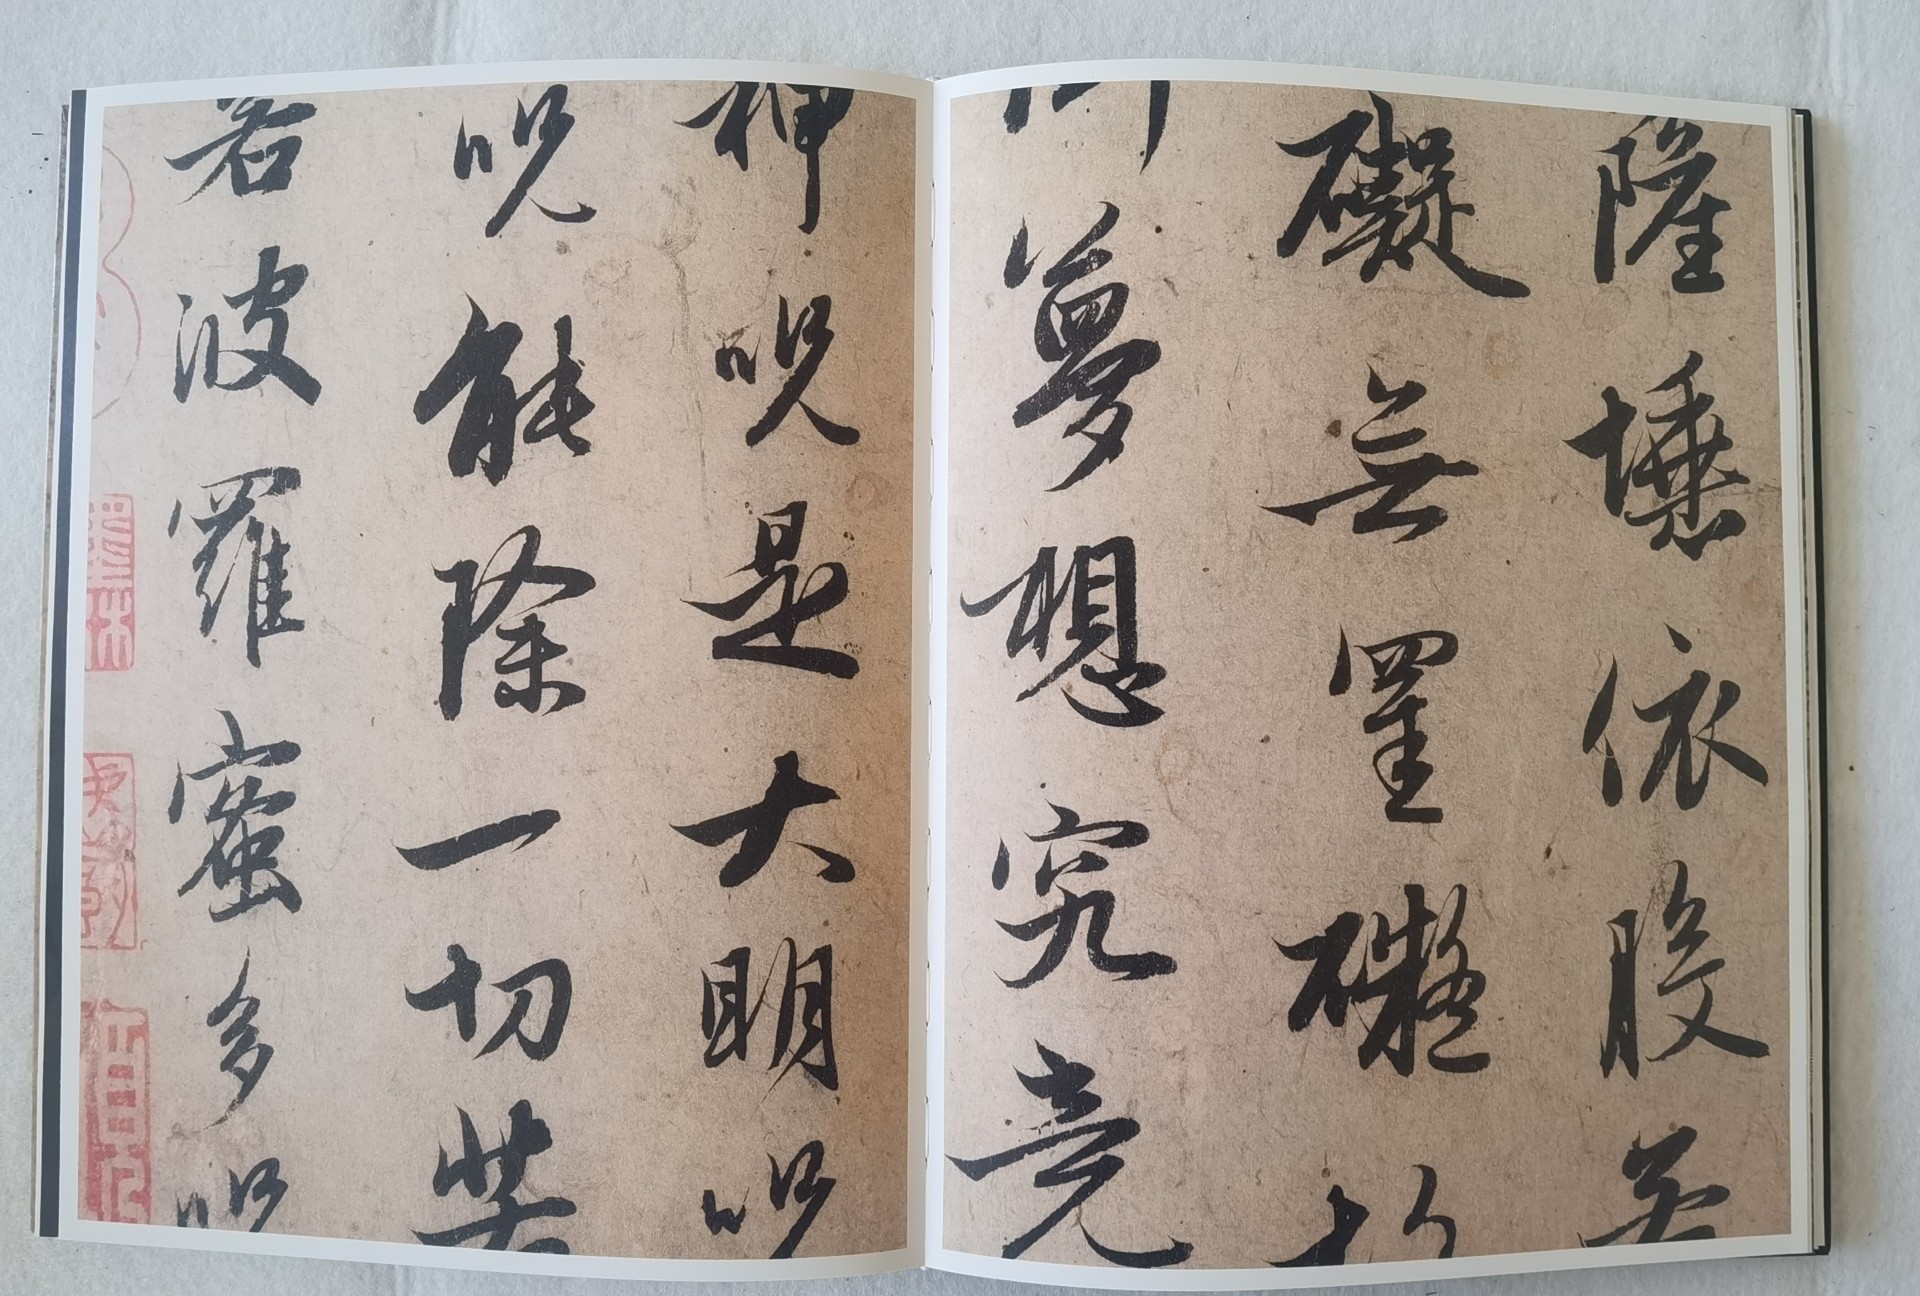 薩埵依般若
礙無罣礙故
夢想究竟
神呪是大明呪
呪能除一切苦
若波羅蜜多呪